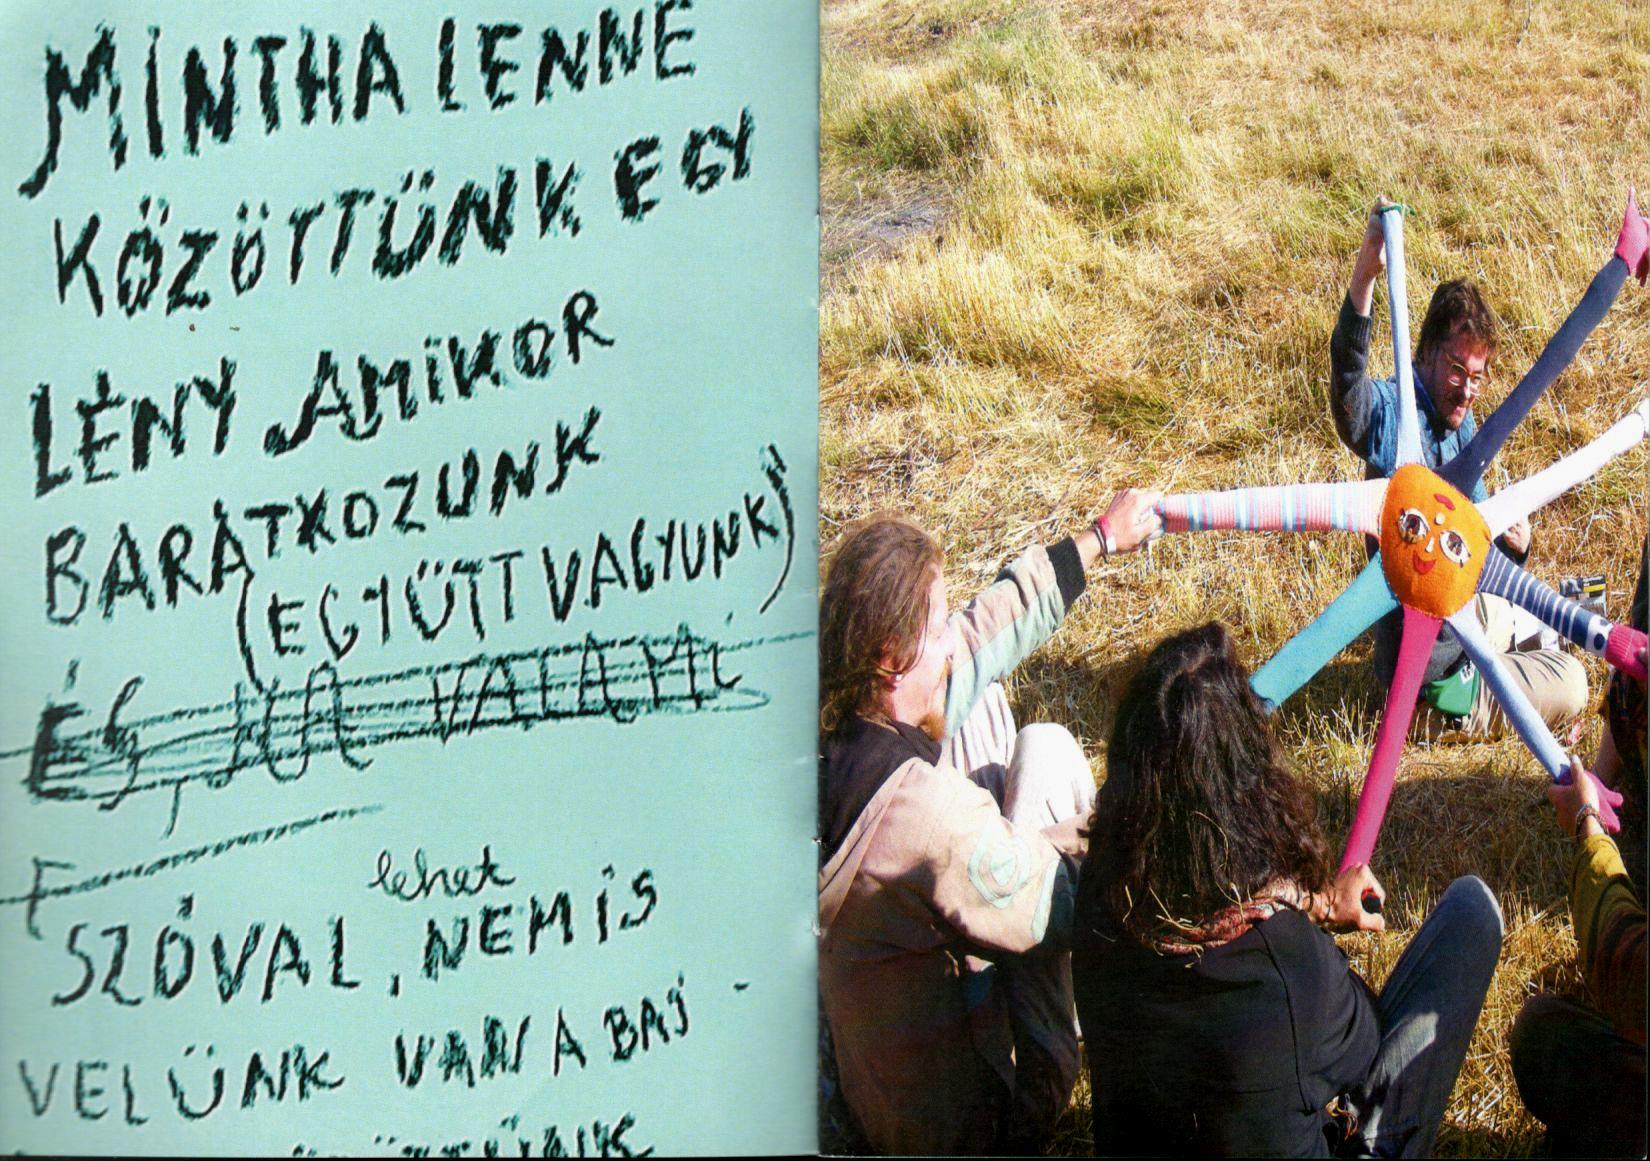 MINTHA LENNE
KÖZÖTTÜNK EGY
LÉNY AMIKOR
BARÁTKOZUNK
(EGYÜTT VAGYUNK)
ÉS, VALAMI
F
lehet
SZÓVAL, NEM IS
VELÜNK VAN A BAJ -